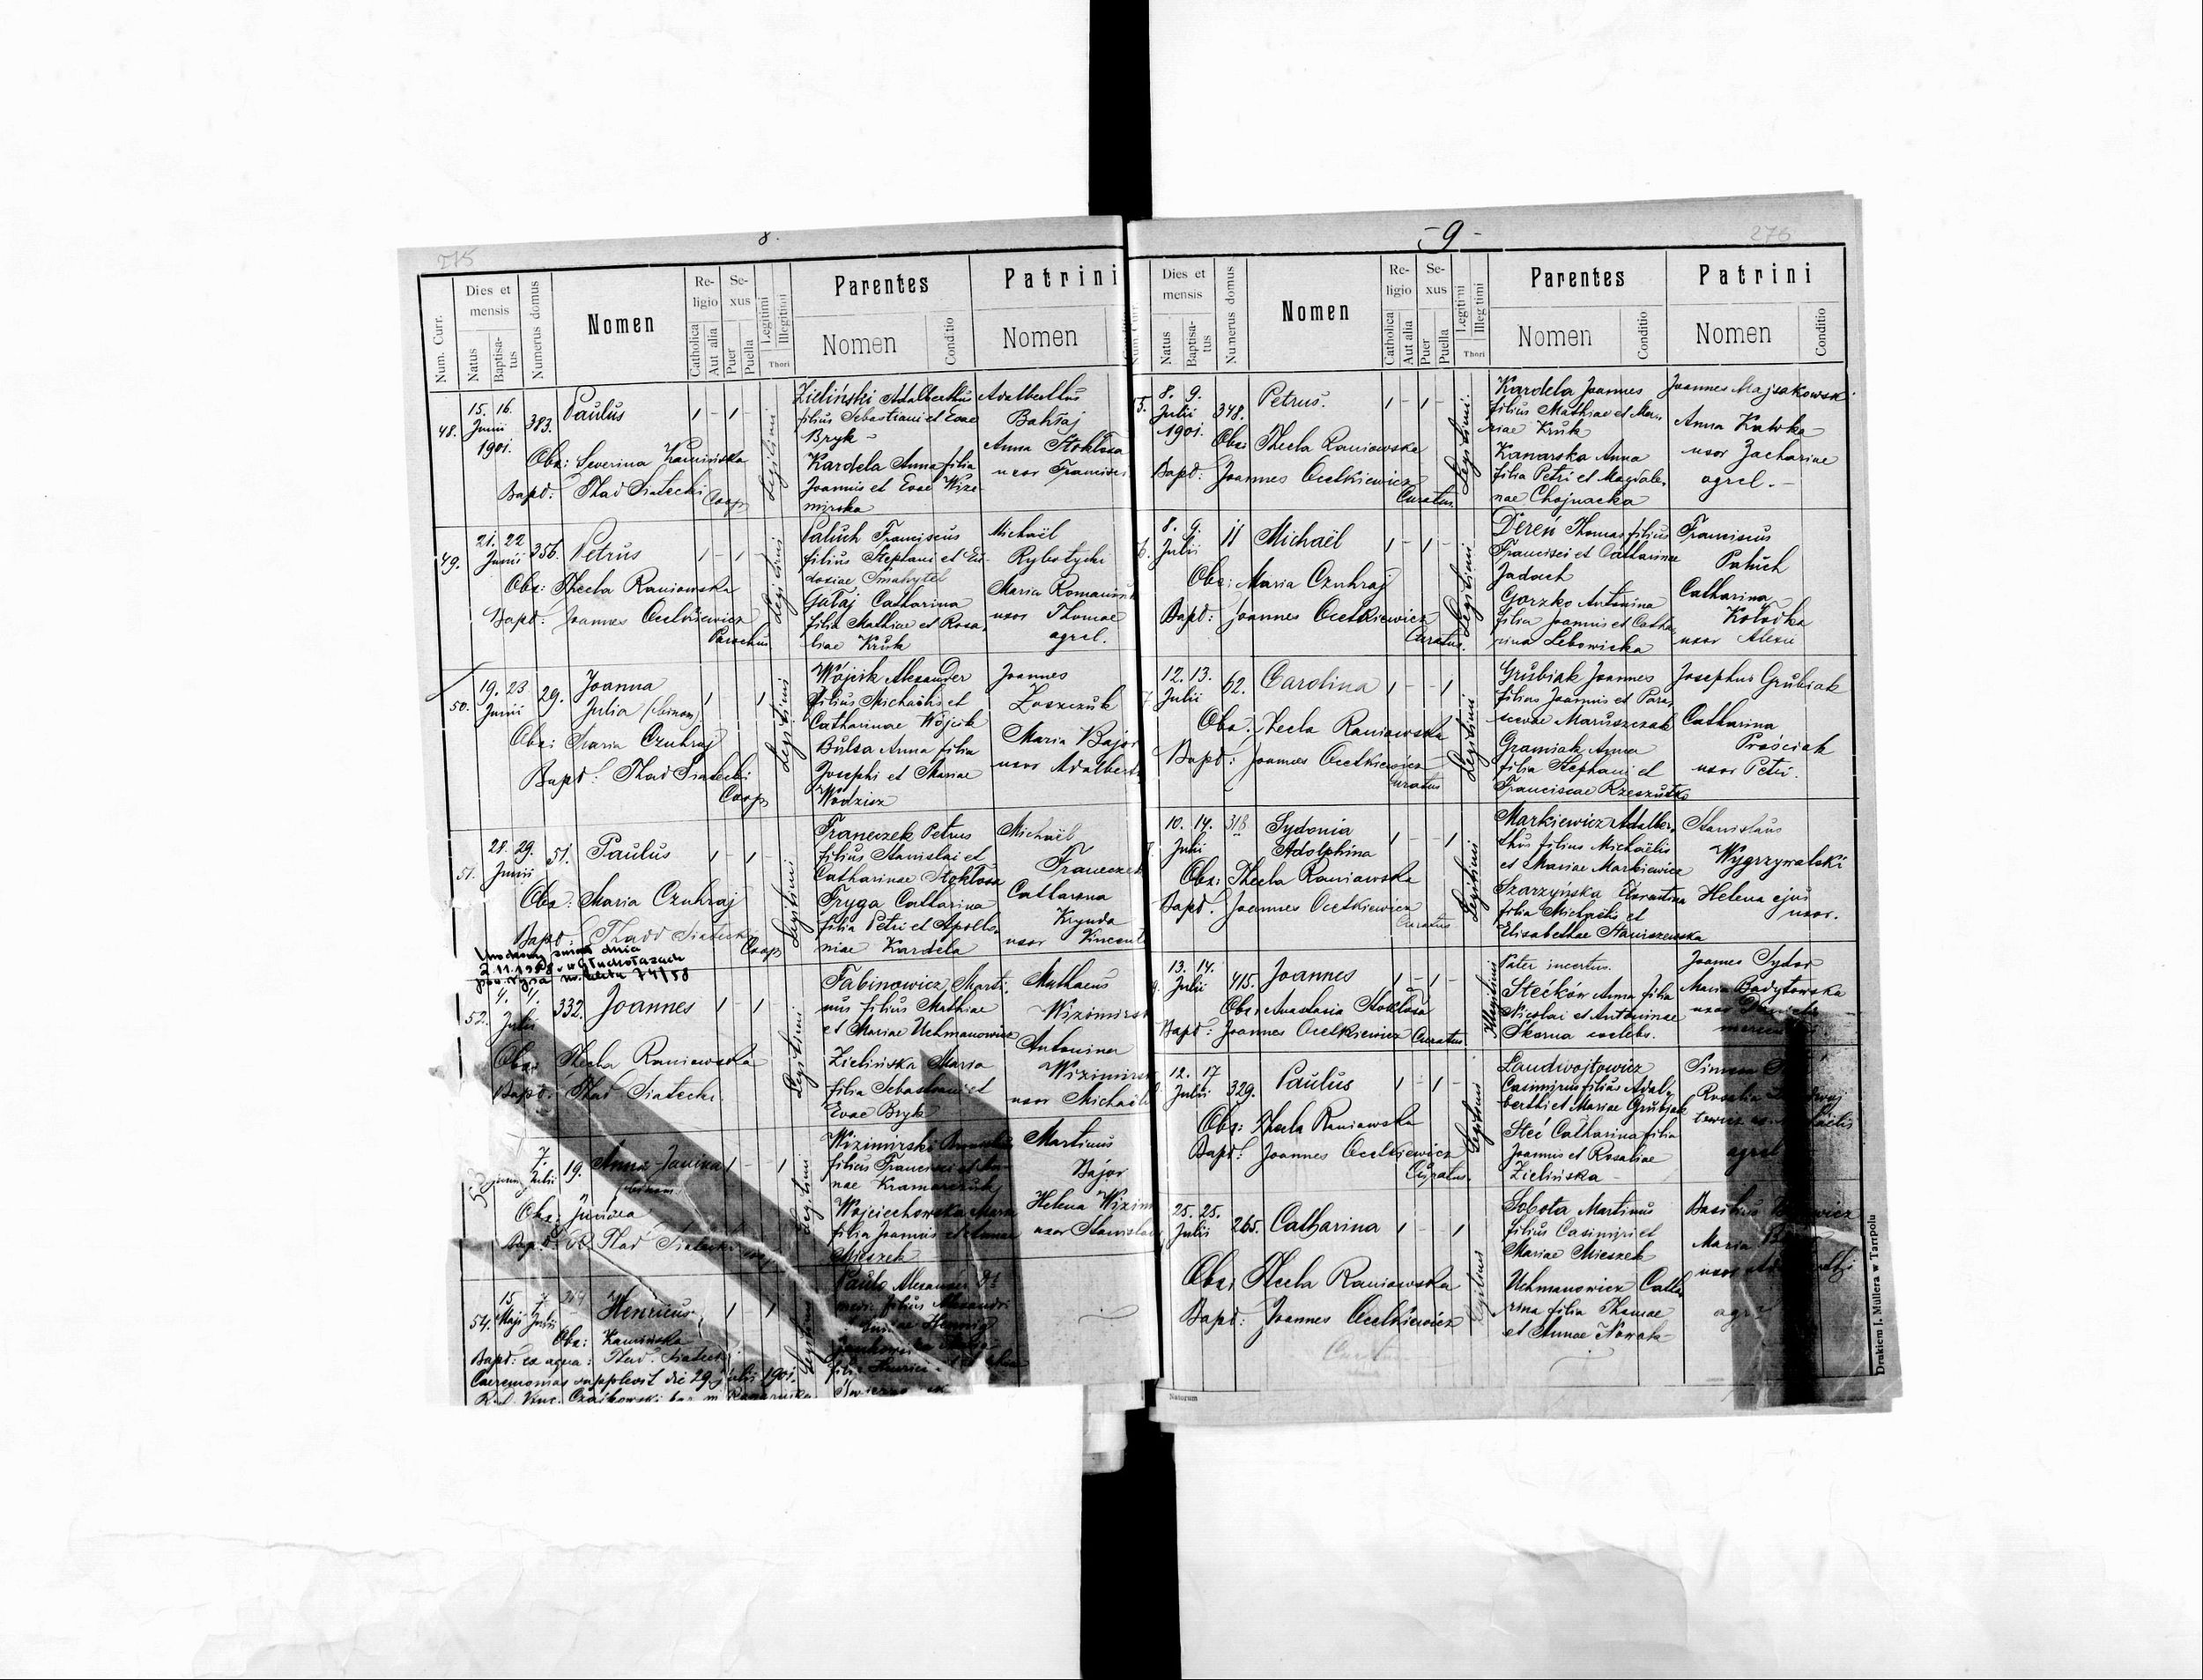 215
8.
Num. Curr.
Dies et mensis
Natus
Baptisatus
Numerus domus
Nomen
Religio
Catholica
Aut alia
Sexus
Puer
Puella
Legitimi
Illegitimi
Thori
Parentes
Nomen
Conditio
Patrini
Nomen
48.
15. 16.
Junii
1901.
383.
Paulus
1 - 1 -
Obs: Severina Kamińska
Bapt: Thad Siatecki Coop
Legitimi
Zieliński Adalberthus
filius Sebastiani et Evae
Bryk -
Kardela Anna filia
Joannis et Evae Wizi-
mirska
Adalbertus
Anna Stokłosa
uxor Francisci
49.
21. 22
Junii
356.
Petrus
1 - 1 -
Obs: Thecla Raniowska
Bapt: Joannes Ocetkiewicz
Parochus
Legitimi
Paluch Franciscus
filius Stephani et Eu-
doxiae Smahytel
Gałaj Catharina
filia Mathiae et Rosa-
liae Kruk
Michaël
Rybotycki
Maria
uxor Thomae
agrel.
50.
19. 23
Junii
29.
Joanna
Julia (binom)
1 - 1
Obs: Maria Czuhraj
Bapt: Thad Siatecki
Coop
Legitimi
Wójcik Alexander
filius Michaëlis et
Catharinae Wójcik
Bulsa Anna filia
Josephi et Mariae
Wodzisz
Joannes
Zoszczuk
Maria Bajor
uxor Adalberti
51.
28. 29.
Junii
51.
Paulus
1 - 1 -
Obs: Maria Czuhraj
Bapt: Thadd Siatecki
Coop
Legitimi
Franczek Petrus
filius Stanislai et
Catharinae Stokłosa
Fryga Catharina
filia Petri et Apollo-
niae Kardela
Michaël
Franczek
Catharina
Krynda
uxor Vincenti
zmarł dnia
2.11.1958 w Głuchołazach
pow. Nysa nr aktu 74/58
52.
4. 7.
Julii
332.
Joannes
1 - 1
Obs: Thecla Raniowska
Bapt: Thad Siatecki
Legitimi
Fabinowicz Marti-
nus filius Mathiae
et Mariae Uchmanowicz
Zielińska Maria
filia Sebastiani et
Evae Bryk
Mathaeus
Wizimirski
Antonina
Wizimirska
uxor Michaëlis
7.
Julii
19.
Anna Janina
binom
1 - 1
Obs:
Bapt: Thad Siatecki Coop
Legitimi
Wizimirski
filius Francisci et An-
nae Kramarczuk
Wojciechowska Maria
filia Joannis et Annae
Mieszek
Martinus
Bajor
Helena
uxor Stanislai
54.
15 7
Maji Julii
Henricus
1 - 1
Obs: Kamińska
Bapt: ex aqua: Thad. Siatecki
Caeremonias supplevit die 29 julii 1901.
Legitimi
Alexander
filius Alexandri
-9-
276
Dies et mensis
Natus
Baptisatus
Numerus domus
Nomen
Religio
Catholica
Aut alia
Sexus
Puer
Puella
Legitimi
Illegitimi
Thori
Parentes
Nomen
Conditio
Patrini
Nomen
Conditio
8. 9.
Julii
1901.
348.
Petrus.
1 - 1 -
Obs: Thecla Raniowska
Bapt: Joannes Ocetkiewicz
Curatus.
Legitimi.
Kardela Joannes
filius Mathiae et Ma-
riae Kruk
Kanarska Anna
filia Petri et Magdale-
nae Chojnacka
Joannes Majsakowski
Anna
uxor Zachariae
agrel. -
8. 9.
Julii
11
Michaël
1 - 1 -
Obs: Maria Czuhraj
Bapt: Joannes Ocetkiewicz
Curatus.
Legitimi
Dereń Thomas filius
Francisci et Catharinae
Jadach
Gorzko Antonina
filia Joannis et Catha-
rina Lebowicka
Franciscus
Paluch
Catharina
Kołodka
uxor Alexii
12. 13.
Julii
62.
Carolina
1 - 1
Obs: Thecla Raniowska
Bapt: Joannes Ocetkiewicz
Curatus
Legitimi
Grubiak Joannes
filius Joannis et Para-
scevae Maruszczak
Gramiak Anna
filia Stephani et
Franciscae Rzeszutko
Josephus Grubiak
Catharina
Prościak
uxor Petri.
10. 14.
Julii
318
Sydonia
Adolphina
1 - 1
Obs: Thecla Raniowska
Bapt. Joannes Ocetkiewicz
Curatus
Legitimi
Markiewicz Adalber-
thus filius Michaëlis
et Mariae Markiewicz
Szarzyńska
filia Michaëlis et
Elisabethae Staniszewska
Stanislaus
Wygrzywalski
Helena ejus
uxor.
13. 14.
Julii
415.
Joannes
1 - 1 -
Obs: Anastasia Stokłosa
Bapt: Joannes Ocetkiewicz Curatus
Illegitimi
Pater incertus.
Stećków Anna filia
Nicolai et Antoninae
Skarna coelebs.
Joannes Sydor
Maria Badytowska
uxor
12. 17
Julii
329.
Paulus
1 - 1 -
Obs: Thecla Raniowska
Bapt: Joannes Ocetkiewicz
Curatus.
Legitimi
Landwojtowicz
Casimirus filius Adal-
berthi et Mariae Grubjak
Steć Catharina filia
Joannis et Rosaliae
Zielińska -
Simeon
Rosalia
agrel
25. 25.
Julii
265.
Catharina
1 - 1
Obs: Thecla Raniowska
Bapt: Joannes Ocetkiewicz
Curatus
Legitimi
Sobota Martinus
filius Casimiri et
Mariae Mieszek
Uchmanowicz Catha-
rina filia Thomae
et Annae Nowak -
Basilius
Maria
uxor
Natorum
Drukiem J. Müllera w Tarnpolu